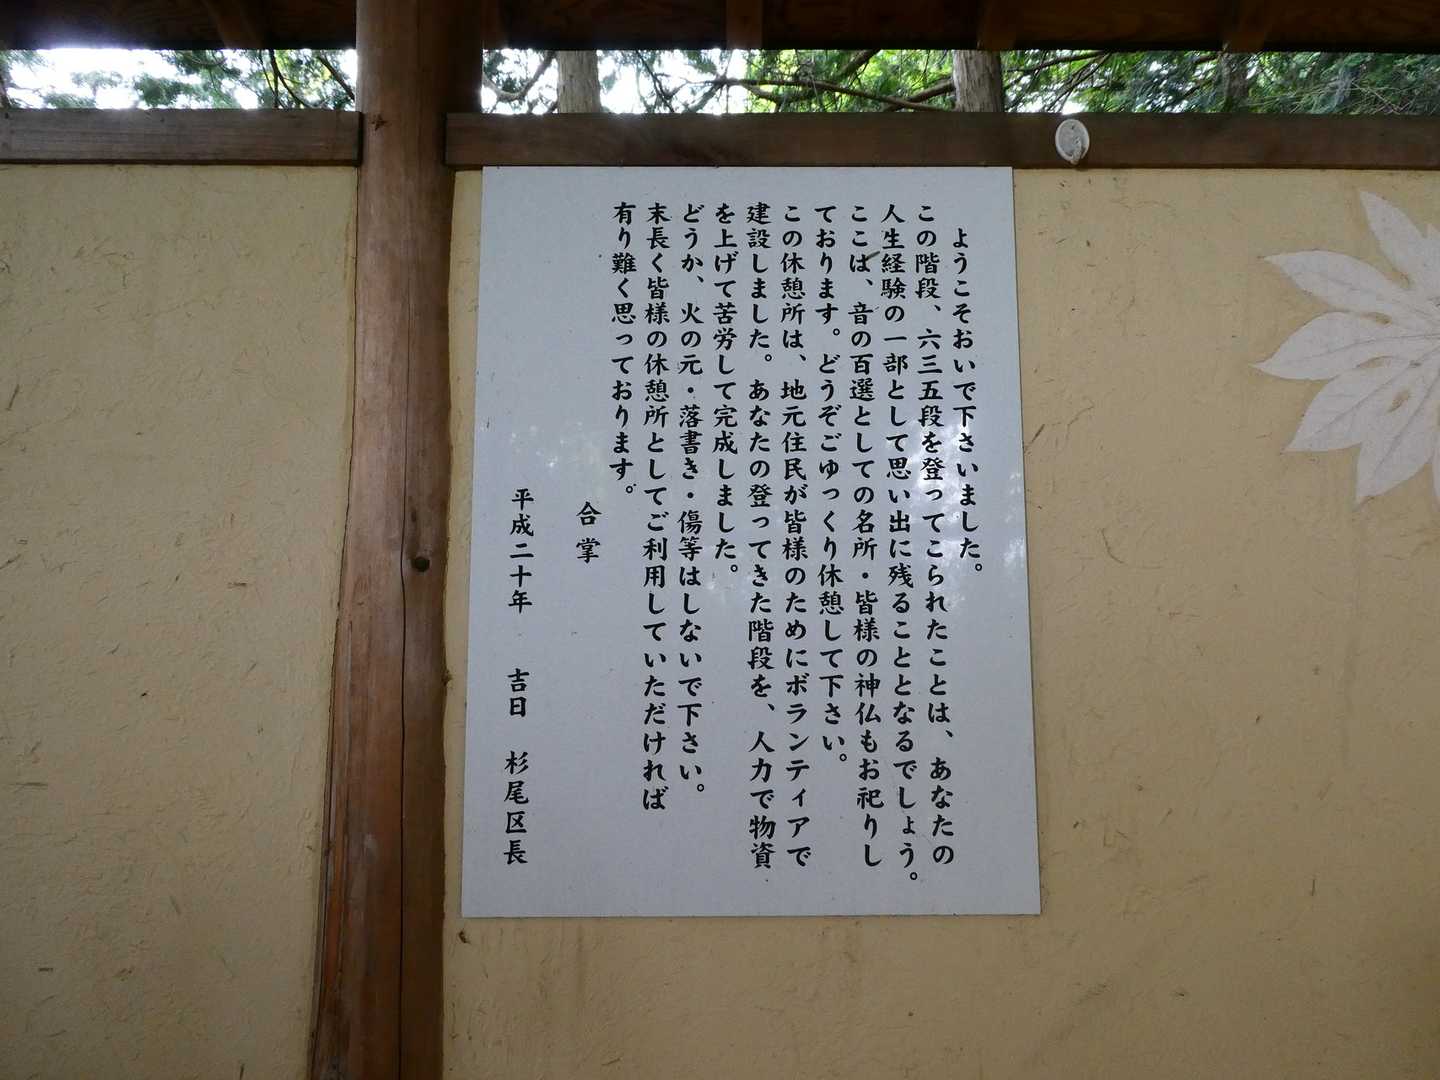 ようこそおいで下さいました。
この階段、六三五段を登ってこられたことは、あなたの
人生経験の一部として思い出に残ることとなるでしょう。
ここは、音の百選としての名所・皆様の神仏もお祀りし
ております。どうぞごゆっくり休憩して下さい。
この休憩所は、地元住民が皆様のためにボランティアで
建設しました。あなたの登ってきた階段を、人力で物資
を上げて苦労して完成しました。
どうか、火の元・落書き・傷等はしないで下さい。
末長く皆様の休憩所としてご利用していただければ
有り難く思っております。
合掌
平成二十年 吉日 杉尾区長